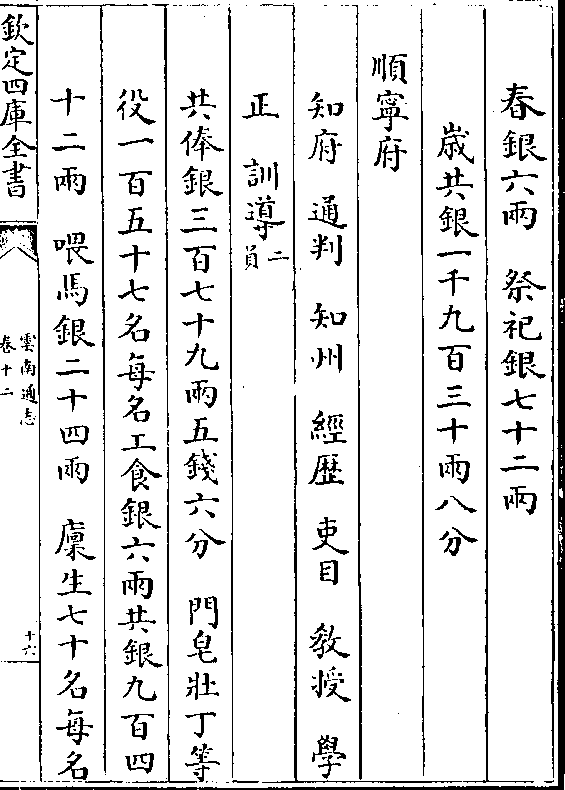 春銀六兩　祭祀銀七十二兩
歲共銀一千九百三十兩八分
順寧府
知府　通判　知州　經歴　吏目　教授　學
正　訓導二員
共俸銀三百七十九兩五錢六分　門皂壯丁等
役一百五十七名每名工食銀六兩共銀九百四
十二兩　喂馬銀二十四兩　廩生七十名每名
欽定四庫全書
雲南通志
卷十二
十六